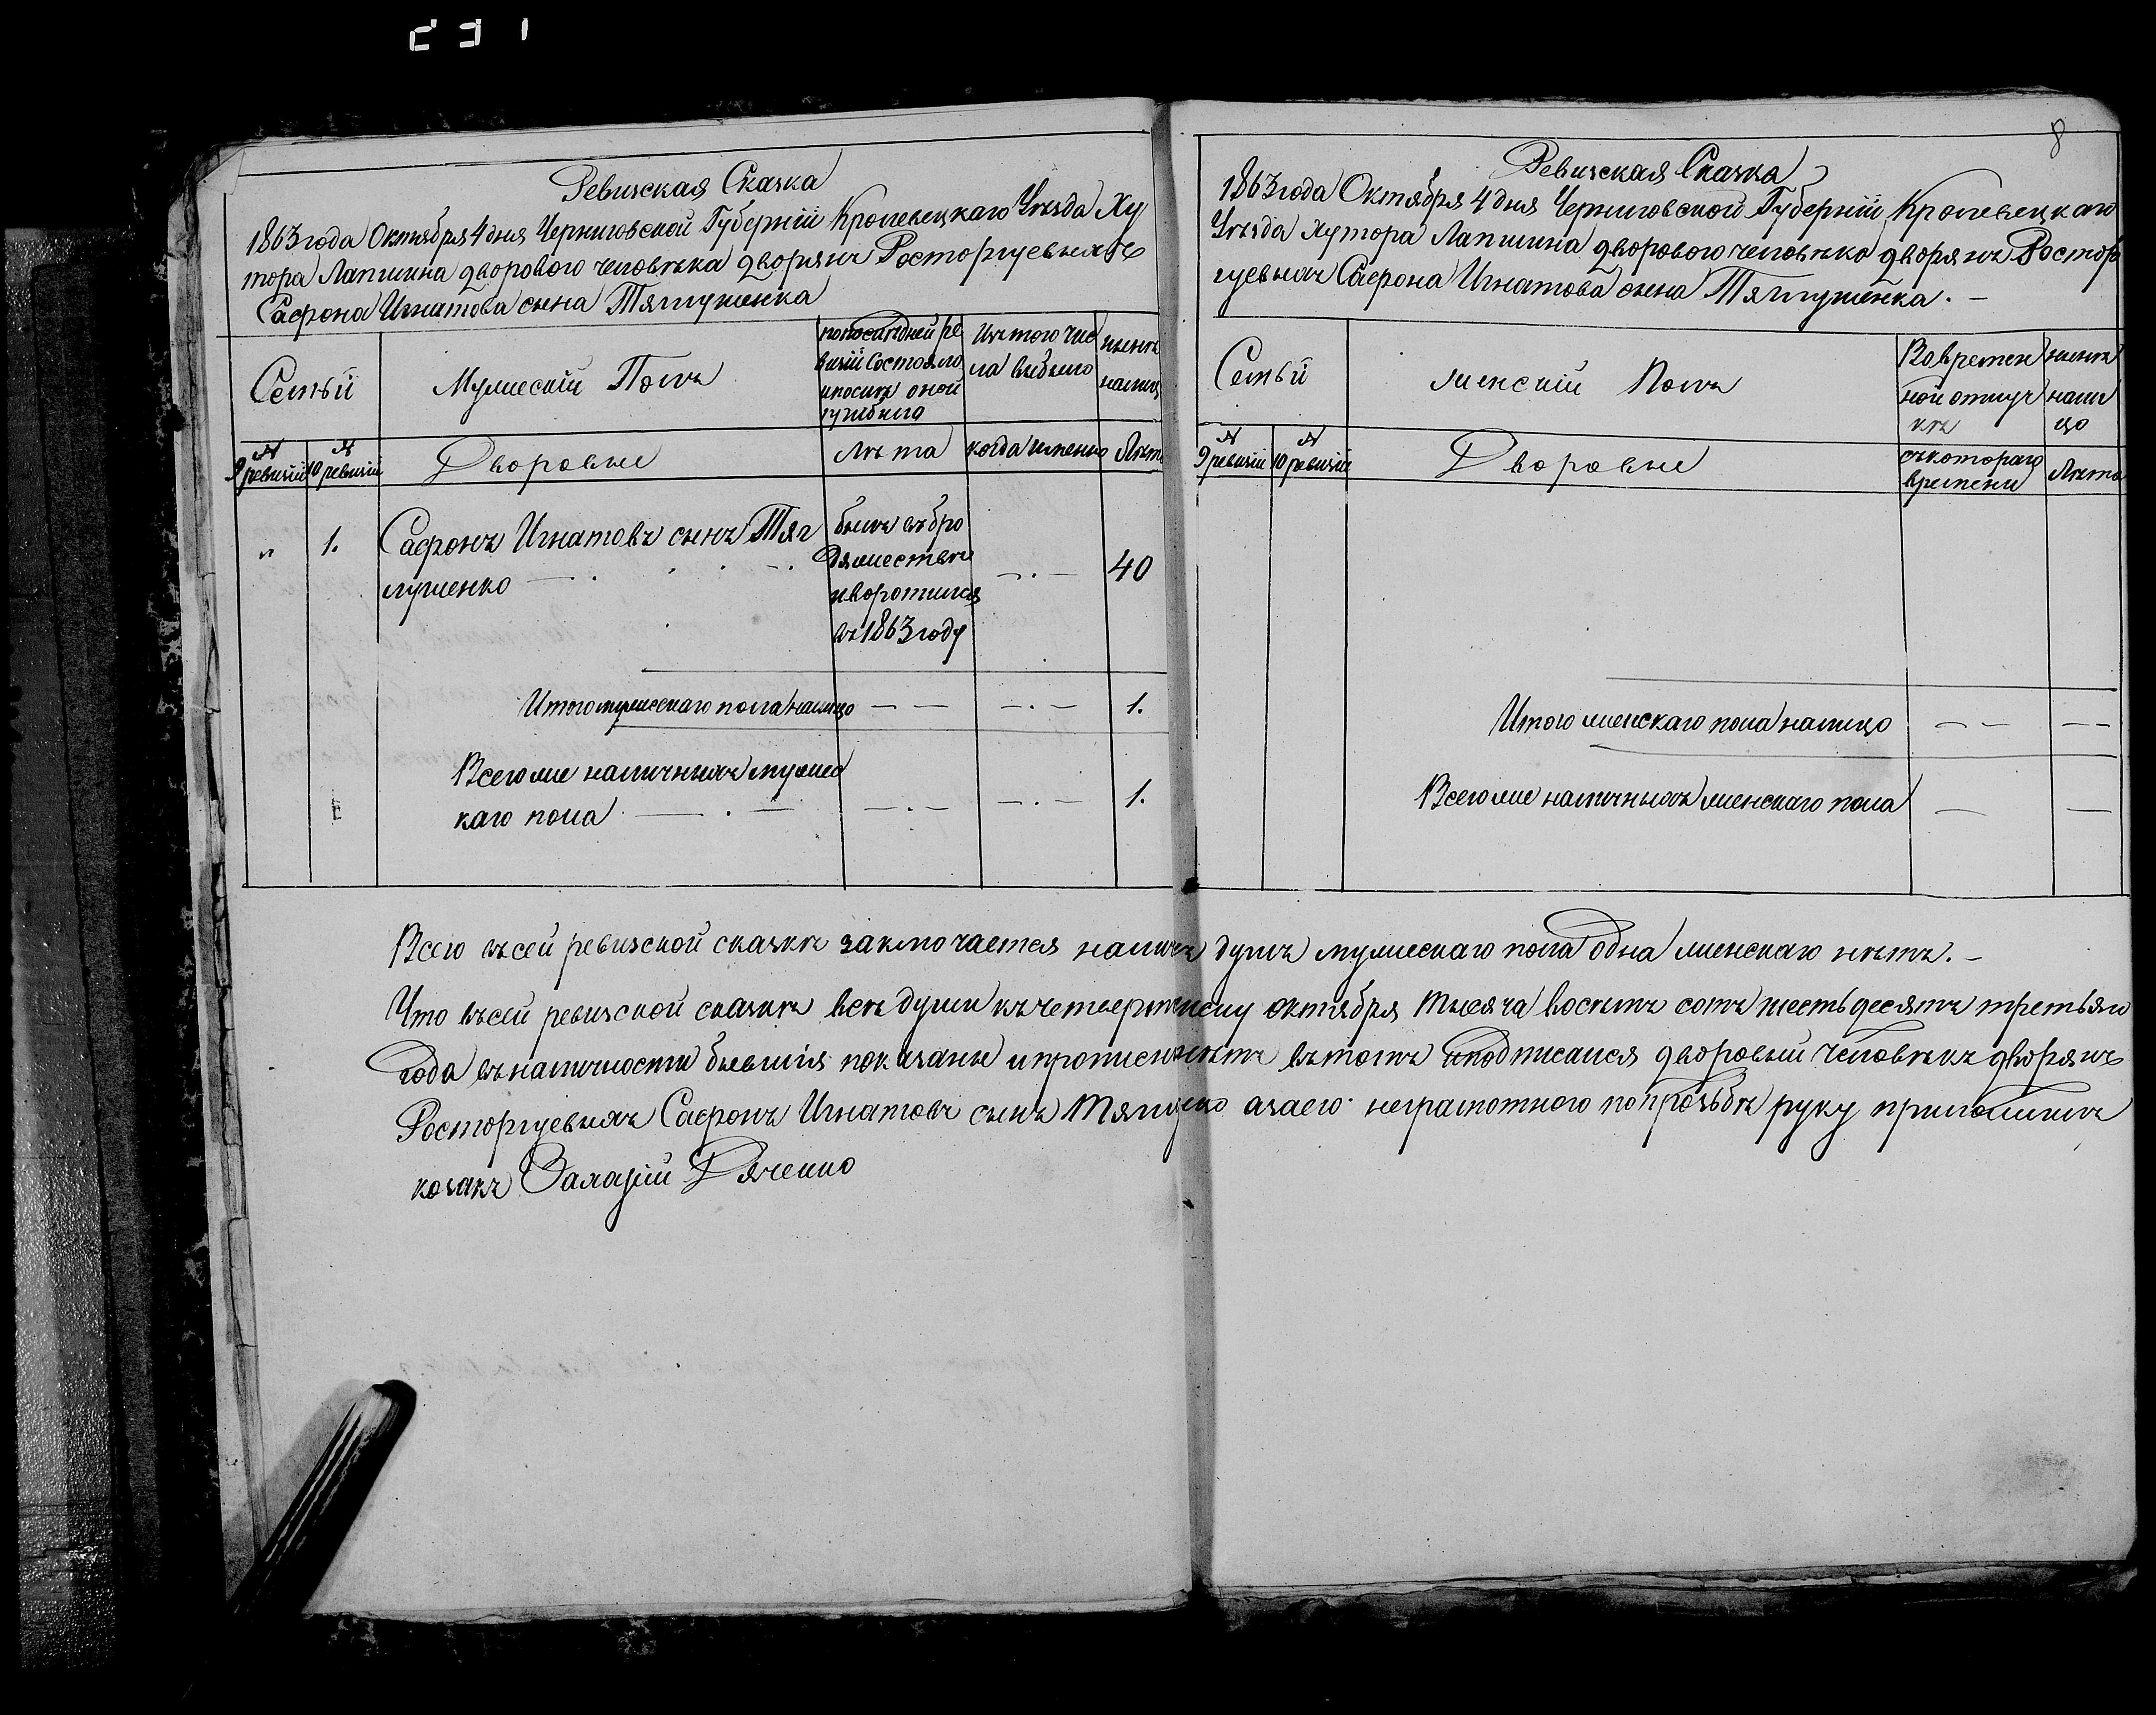 231
Ревизская Сказка
1863 года Октября 4 дня Черниговской Губерніи Кролевецкаго Уѣзда Ху
тора Лапшина дворового человѣка дворянъ Росторгуевыхъ
Сафрона Игнатова сына
Семьи
Мужескій Полъ
по послѣдней ре
визіи состояло
и послѣ оной
прибыло
Изъ того чис
ла выбыло
нынѣ
налиц
№
9 ревизіи
№
10 ревизіи
Дворовые
Лѣта
когда именно
Лѣта
"
1.
Сафронъ Игнатовъ сынъ Тяг
лушенко
былъ въ бро
дяжествѣ
и воротился
въ 1863 году
40
Итого мужескаго пола налицо
1.
Всего же наличныхъ мужес
каго пола
1.
8
Ревизская Сказка
1863 года Октября 4 дня Черниговской Губерніи Кролевецкаго
Уѣзда Хутора Лапшина дворового человѣка дворянъ Ростор
гуевыхъ Сафрона Игнатова сына
Семьи
женскій Полъ
Во времен
ной отлуч
кѣ
нынѣ
нали
цо
№
9 ревизіи
№
10 ревизіи
Дворовые
съ котораго
времени
Лѣта
Итого женскаго пола налицо
Всего же наличныхъ женскаго пола
Всего въ сей ревизской сказкѣ заключается наличъ душъ мужескаго пола одна женскаго нѣтъ.
Что въ сей ревизской сказкѣ всѣ души къ четвертому октября тысяча восемь сотъ шестьдесятъ третьяго
года въ наличности бывшія показаны и прописныхъ нѣтъ въ томъ подписался дворовый человѣкъ дворянъ
Росторгуевыхъ Сафронъ Игнатовъ сынъ а за его неграмотного по прозьбѣ руку приложилъ
козакъ Дяченко